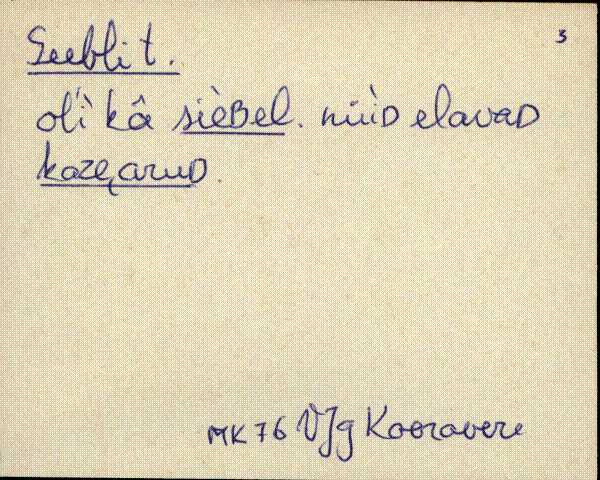 3
Seeblit.
ol'i kâ sièBel. nüìD elavaD
kazęaruD.
MK 76 VJg Kooravere